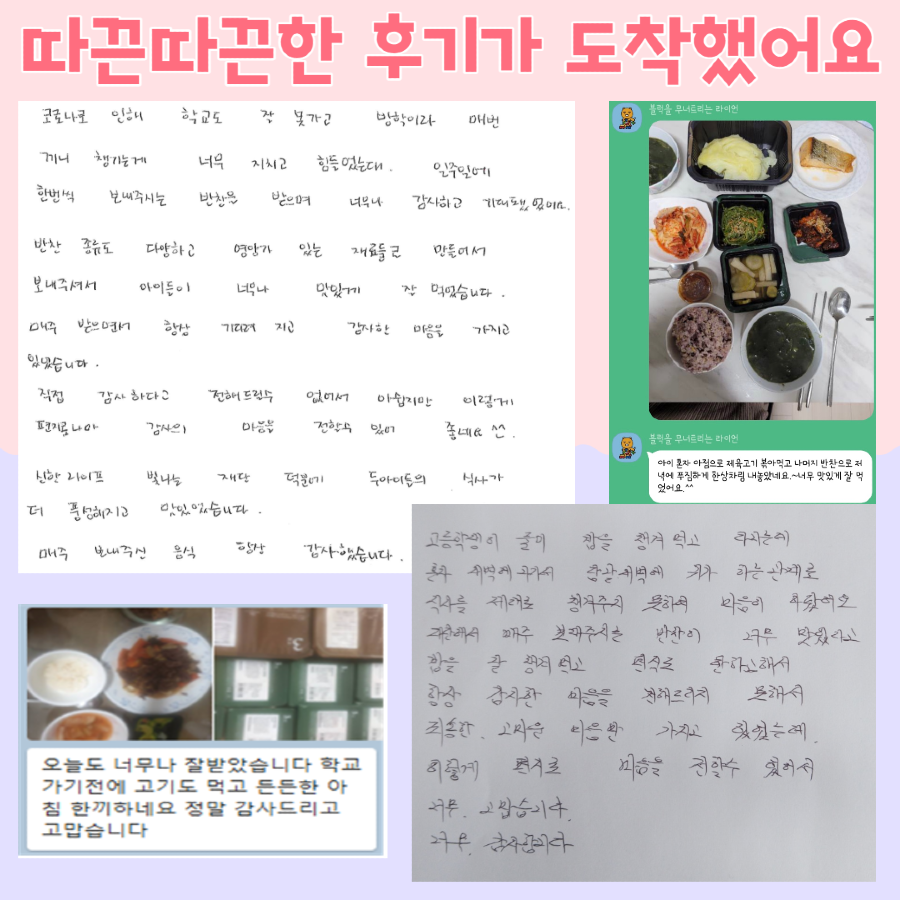 따끈따끈한 후기가 도착했어요
코로나로 인해 학교도 잘 못가고 방학이라 매번
끼니 챙기는게 너무 지치고 힘들었는데. 일주일에
한번씩 보내주시는 반찬을 받으며 너무나 감사하고 기대됐었어요.
반찬 종류도 다양하고 영양가 있는 재료들로 만들어서
보내주셔서 아이들이 너무나 맛있게 잘 먹었습니다.
매주 받으면서 항상 기다려 지고 감사한 마음을 가지고
있었습니다.
직접 감사하다고 전해드릴수 없어서 아쉽지만 이렇게
편지로나마 감사의 마음을 전할수 있어 좋네요 ^^.
신한라이프 빛나는 재단 덕분에 두아이들의 식사가
더 풍성해지고 맛있었습니다.
매주 보내주신 음식 항상 감사했습니다.
블럭을 무너트리는 라이언
블럭을 무너트리는 라이언
아이 혼자 아점으로 제육고기 볶아먹고 나머지 반찬으로 저
녁에 푸짐하게 한상차림 내놓았네요.~너무 맛있게 잘 먹
었어요.^^
오늘도 너무나 잘받았습니다 학교
가기전에 고기도 먹고 든든한 아
침 한끼하네요 정말 감사드리고
고맙습니다
고등학생이 둘이 밥을 챙겨 먹고 다니는데
혼자 새벽에 나가서 새벽에 하는 관계로
식사를 제대로 챙겨주지 못하여 마음이 아팠어요
재단에서 매주 보내주시는 반찬이 너무 맛있다고
밥을 잘 챙겨 먹고 편식도 안하고해서
항상 감사한 마음을 전해드리지 못해서
죄송한. 고마운 마음만 가지고 있었는데.
이렇게 편지로 마음을 전할수 있어서
너무. 고맙습니다.
너무. 감사합니다